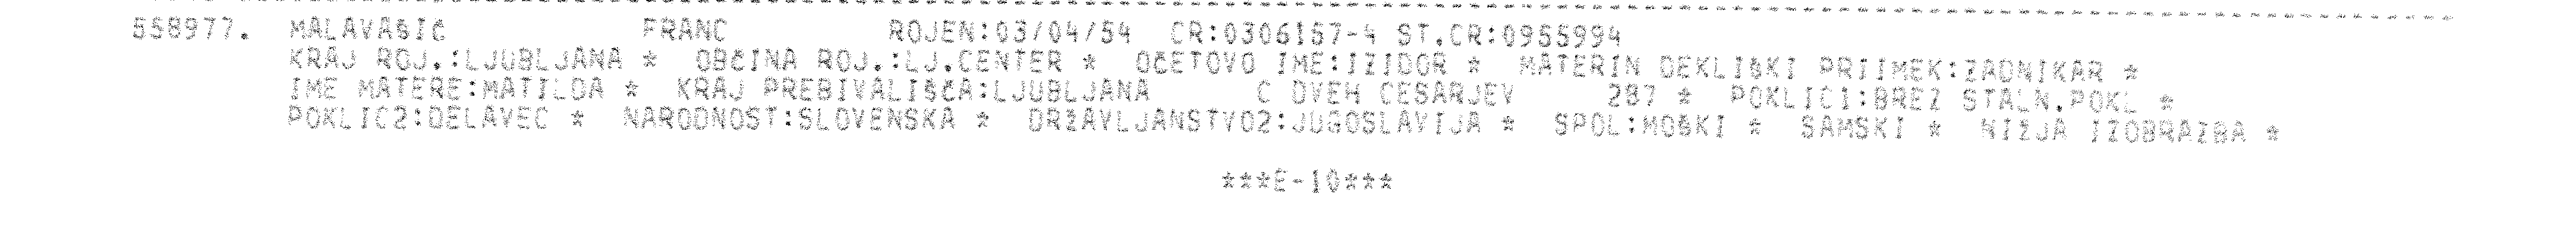 558977. MALAVAŠIČ FRANC ROJEN:03/04/54 CR:0306157-4 ST.CR:0955994
KRAJ ROJ.:LJUBLJANA * OBČINA ROJ.:LJ.CENTER * OČETOVO IME:IZIDOR * MATERIN DEKLIŠKI PRIIMEK:ZADNIKAR *
IME MATERE:MATILDA * KRAJ PREBIVALIŠČA:LJUBLJANA C DVEH CESARJEV 287 * POKLIC1:BREZ STALN.POKL *
POKLIC2:DELAVEC * NARODNOST:SLOVENSKA * DRŽAVLJANSTVO2:JUGOSLAVIJA * SPOL:MOŠKI * SAMSKI * NIŽJA IZOBRAZBA *
***E-10***